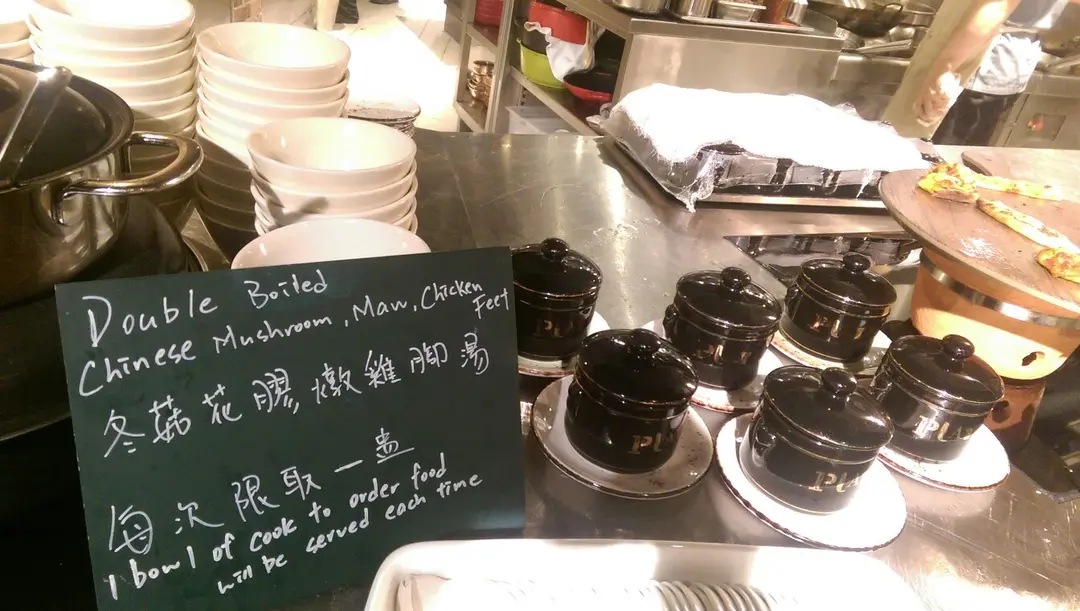 Double Boiled
Chinese Mushroom, Maw, Chicken Feet
冬菇花膠燉雞腳湯
每次限取一盅
1 bowl of cook to order food
will be served each time